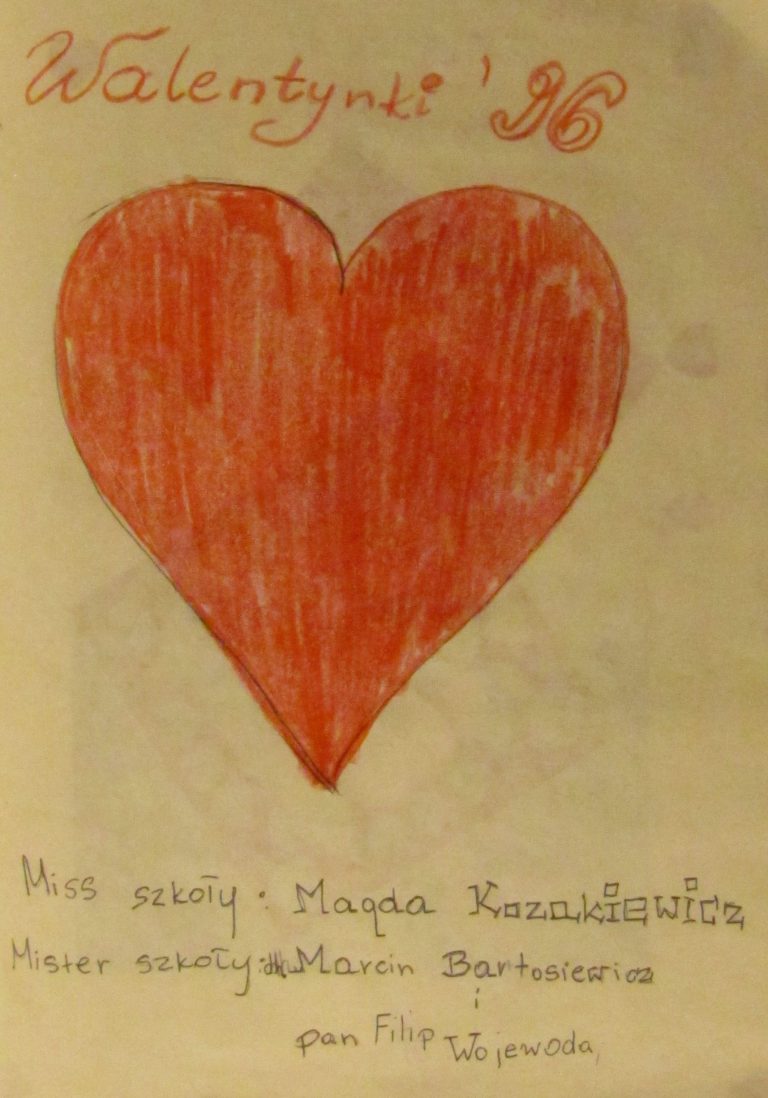 Walentynki '96
Miss szkoły: Magda Kozakiewicz
Mister szkoły: Marcin Bartosiewicz
i
pan Filip Wojewoda,